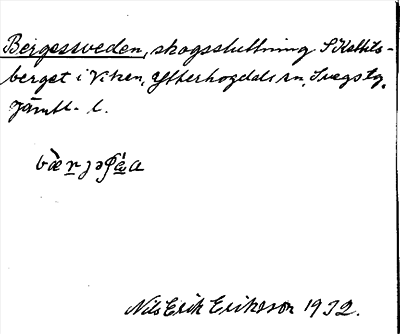 Bergessveden, skogssluttning S Kattits-
berget i Viken, Ytterhogdals sn, Svegs tg,
Jämtl. l.
Nils Erik Eriksson 1932.